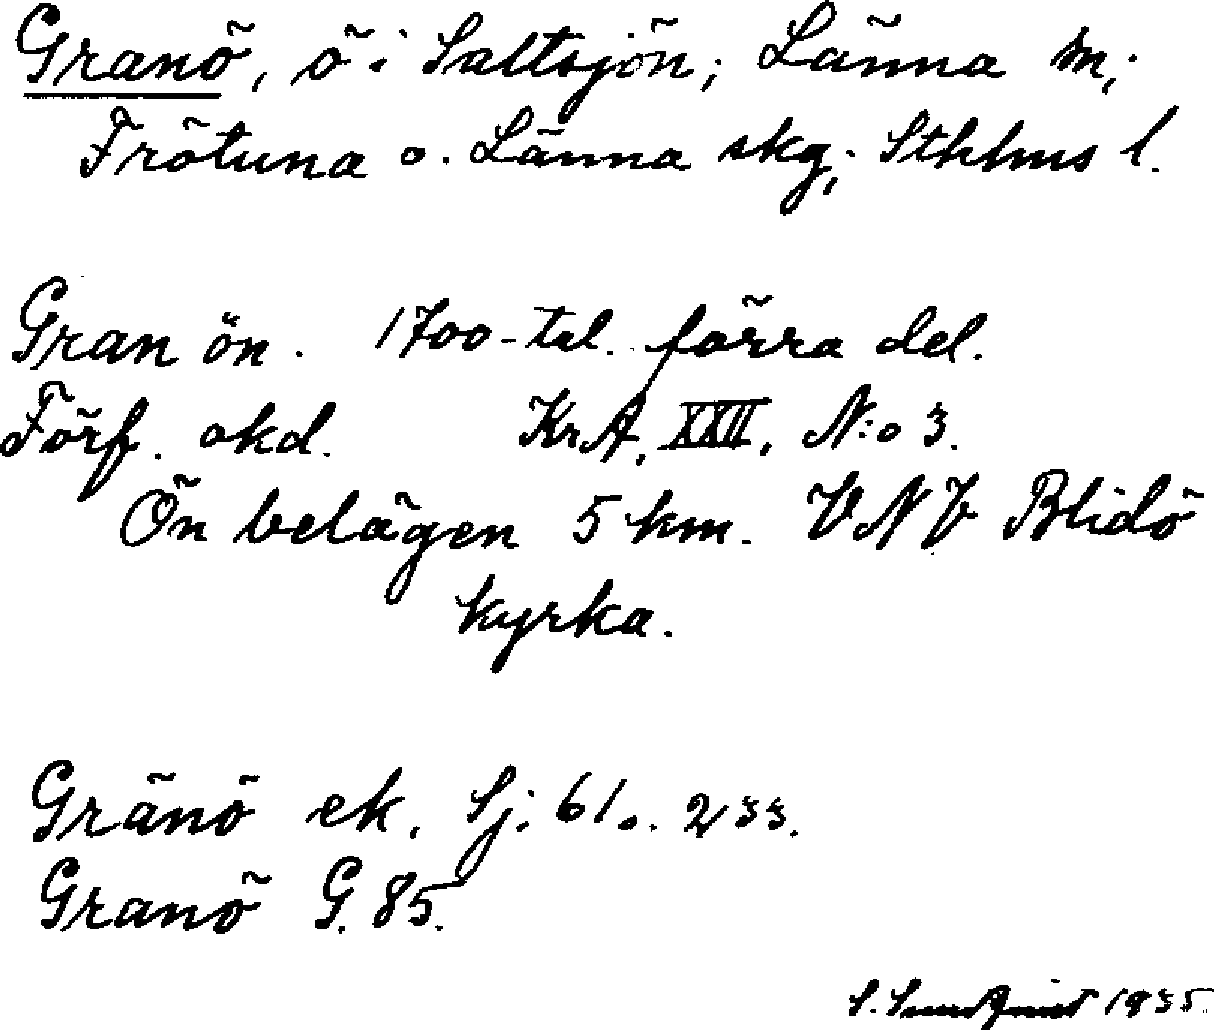 Granö, ö i Saltsjön; Länna sn;
Frötuna o. Länna skg; Sthlms l.
Gran ön. 1700-tal. förra del.
Förf. okd. KrA, XXII, N:o 3.
Ön belägen 5 km. VNV Blidö
kyrka.
Gränö ek. Sj: 61 o. 233.
Granö G. 85.
S. 1935